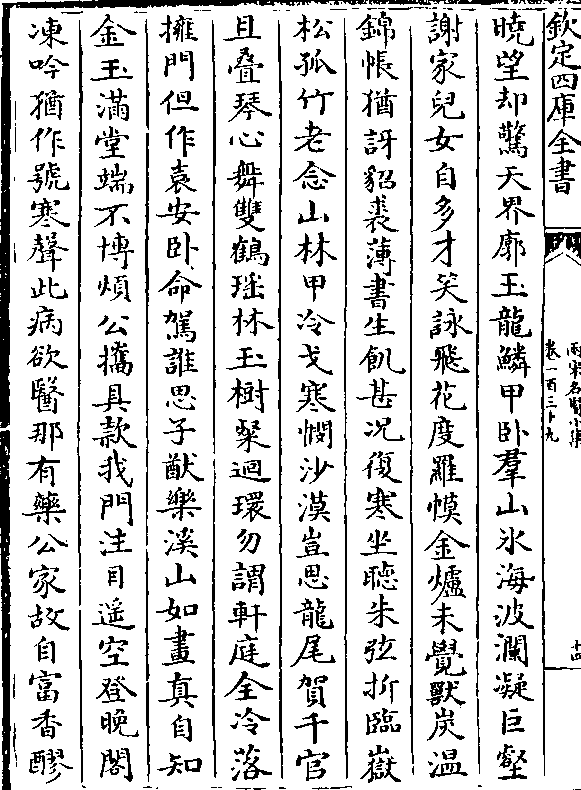 欽定四庫全書
兩宋名賢小集
卷一百三十九
十四
曉望却驚天界廓玉龍鱗甲卧羣山氷海波瀾凝巨壑
謝家兒女自多才笑詠飛花度羅幙金爐未覺獸炭温
錦帳猶訝貂裘薄書生飢甚况復寒坐聽朱弦折臨嶽
松孤竹老念山林甲冷戈寒憫沙漠豈思龍尾賀千官
且叠琴心舞雙鶴瑶林玉樹粲迴環勿謂軒庭全冷落
擁門但作袁安卧命駕誰思子猷樂溪山如畫真自知
金玉滿堂端不博煩公攜具款我門注目遥空登晚閣
凍吟猶作號寒聲此病欲醫那有藥公家故自富香醪